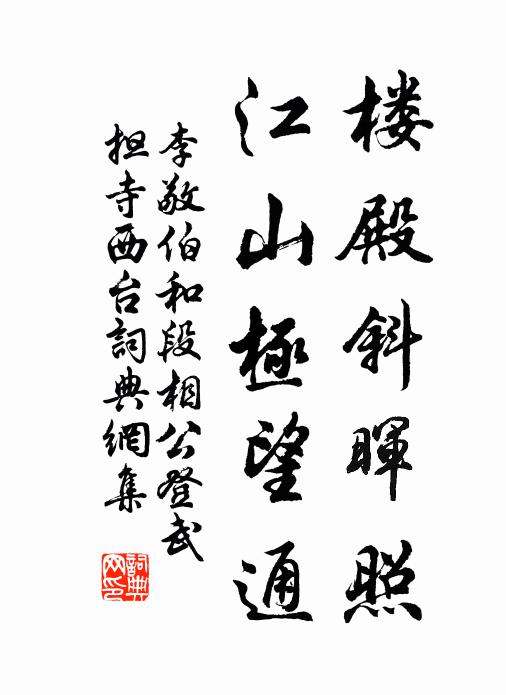 楼殿斜暉照
江山極望通
李敬伯和段相公登武
担寺西台詞典網集
詞典网印